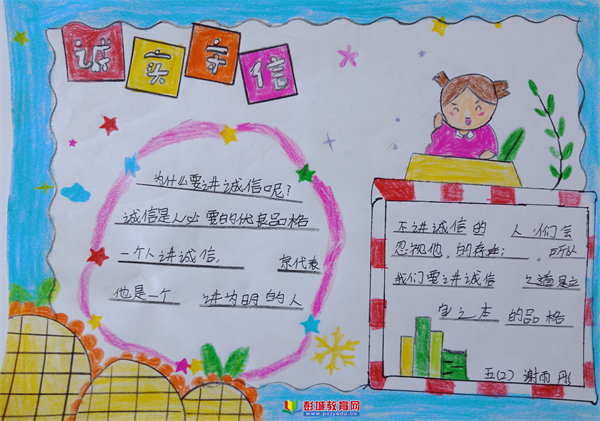 诚实守信
为什么要讲诚信呢?
诚信是人必要的优良品格
一个人讲诚信, 就代表
他是一个 讲为明的人
不讲诚信的 人们会
忽视他的存在; 所以
我们要讲诚信
的品格
五(2) 谢雨彤
彭城教育网
www.pcjyedu.cn